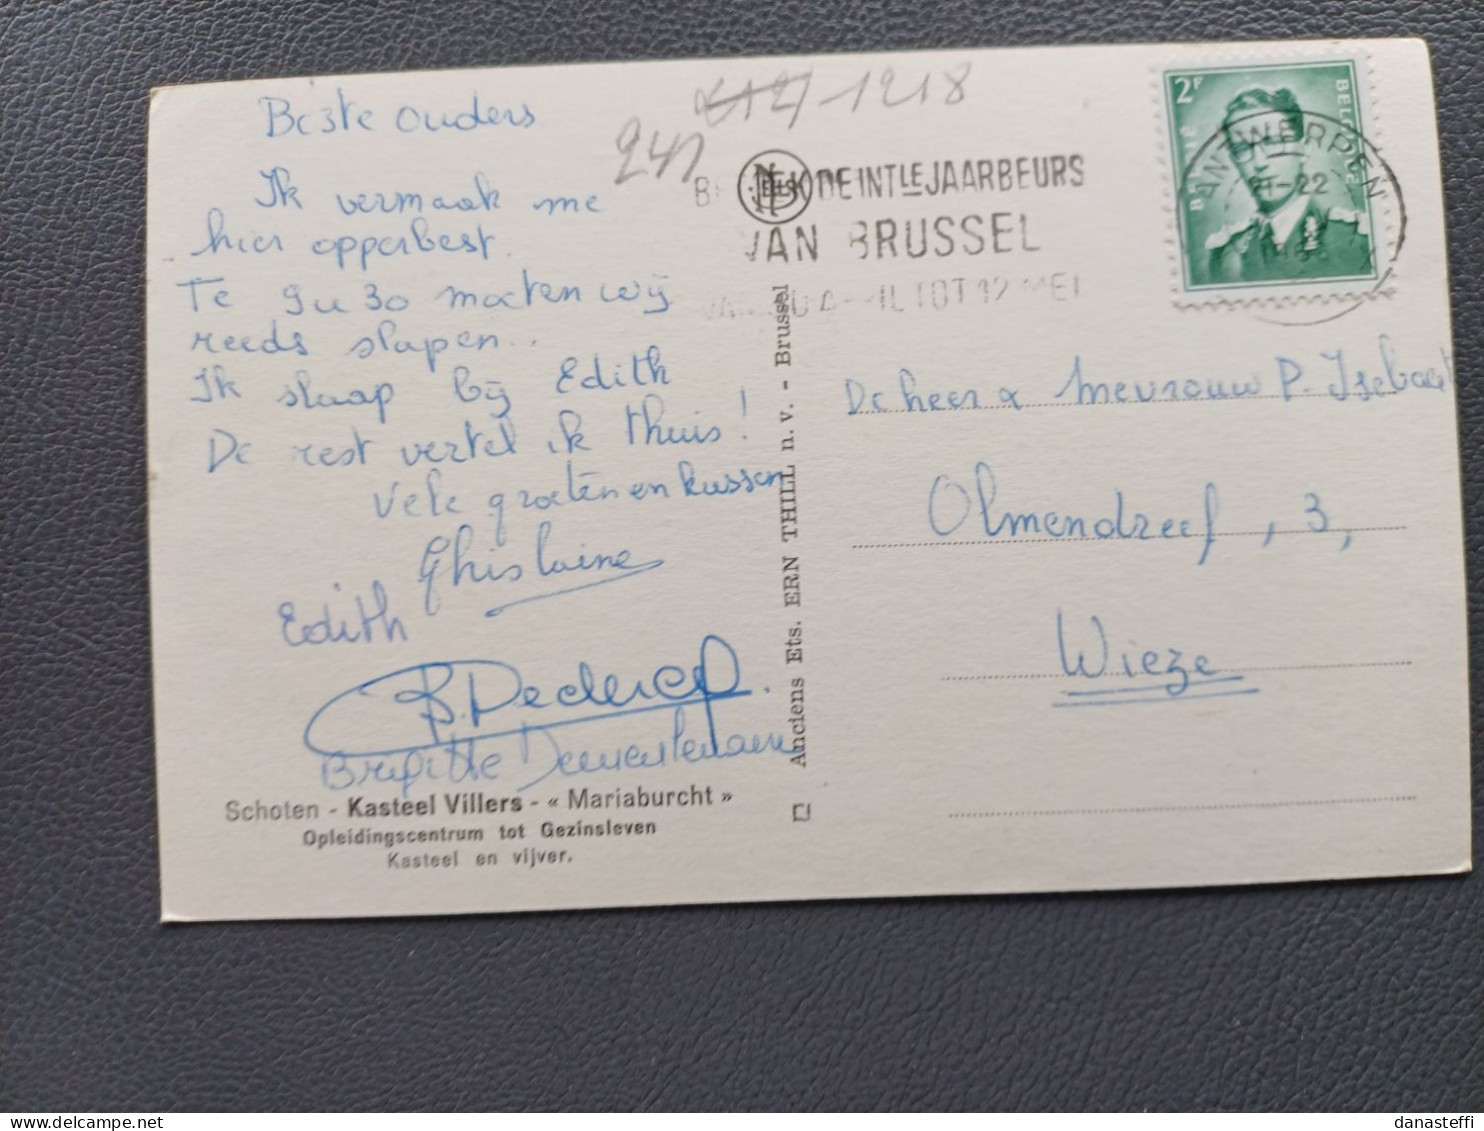 Beste ouders
Ik vermaak me
hier opperbest.
Te 9u30 moeten wij
reeds slapen..
Ik slaap bij Edith
De rest vertel ik thuis!
Vele groeten en kussen
Ghislaine
Edith
B. Declercq.
Brigitte
Schoten - Kasteel Villers - « Mariaburcht »
Opleidingscentrum tot Gezinsleven
Kasteel en vijver.
241
1218
NELS
DE INTLE JAARBEURS
VAN BRUSSEL
TOT 12 MEI
Anciens Ets. ERN THILL n. v. - Brussel
2F
BELGIE
BELGIQUE
ANTWERPEN
21-22
De heer & Mevrouw P. Isebaert
Olmendreef, 3,
Wieze
delcampe.net
danasteffi